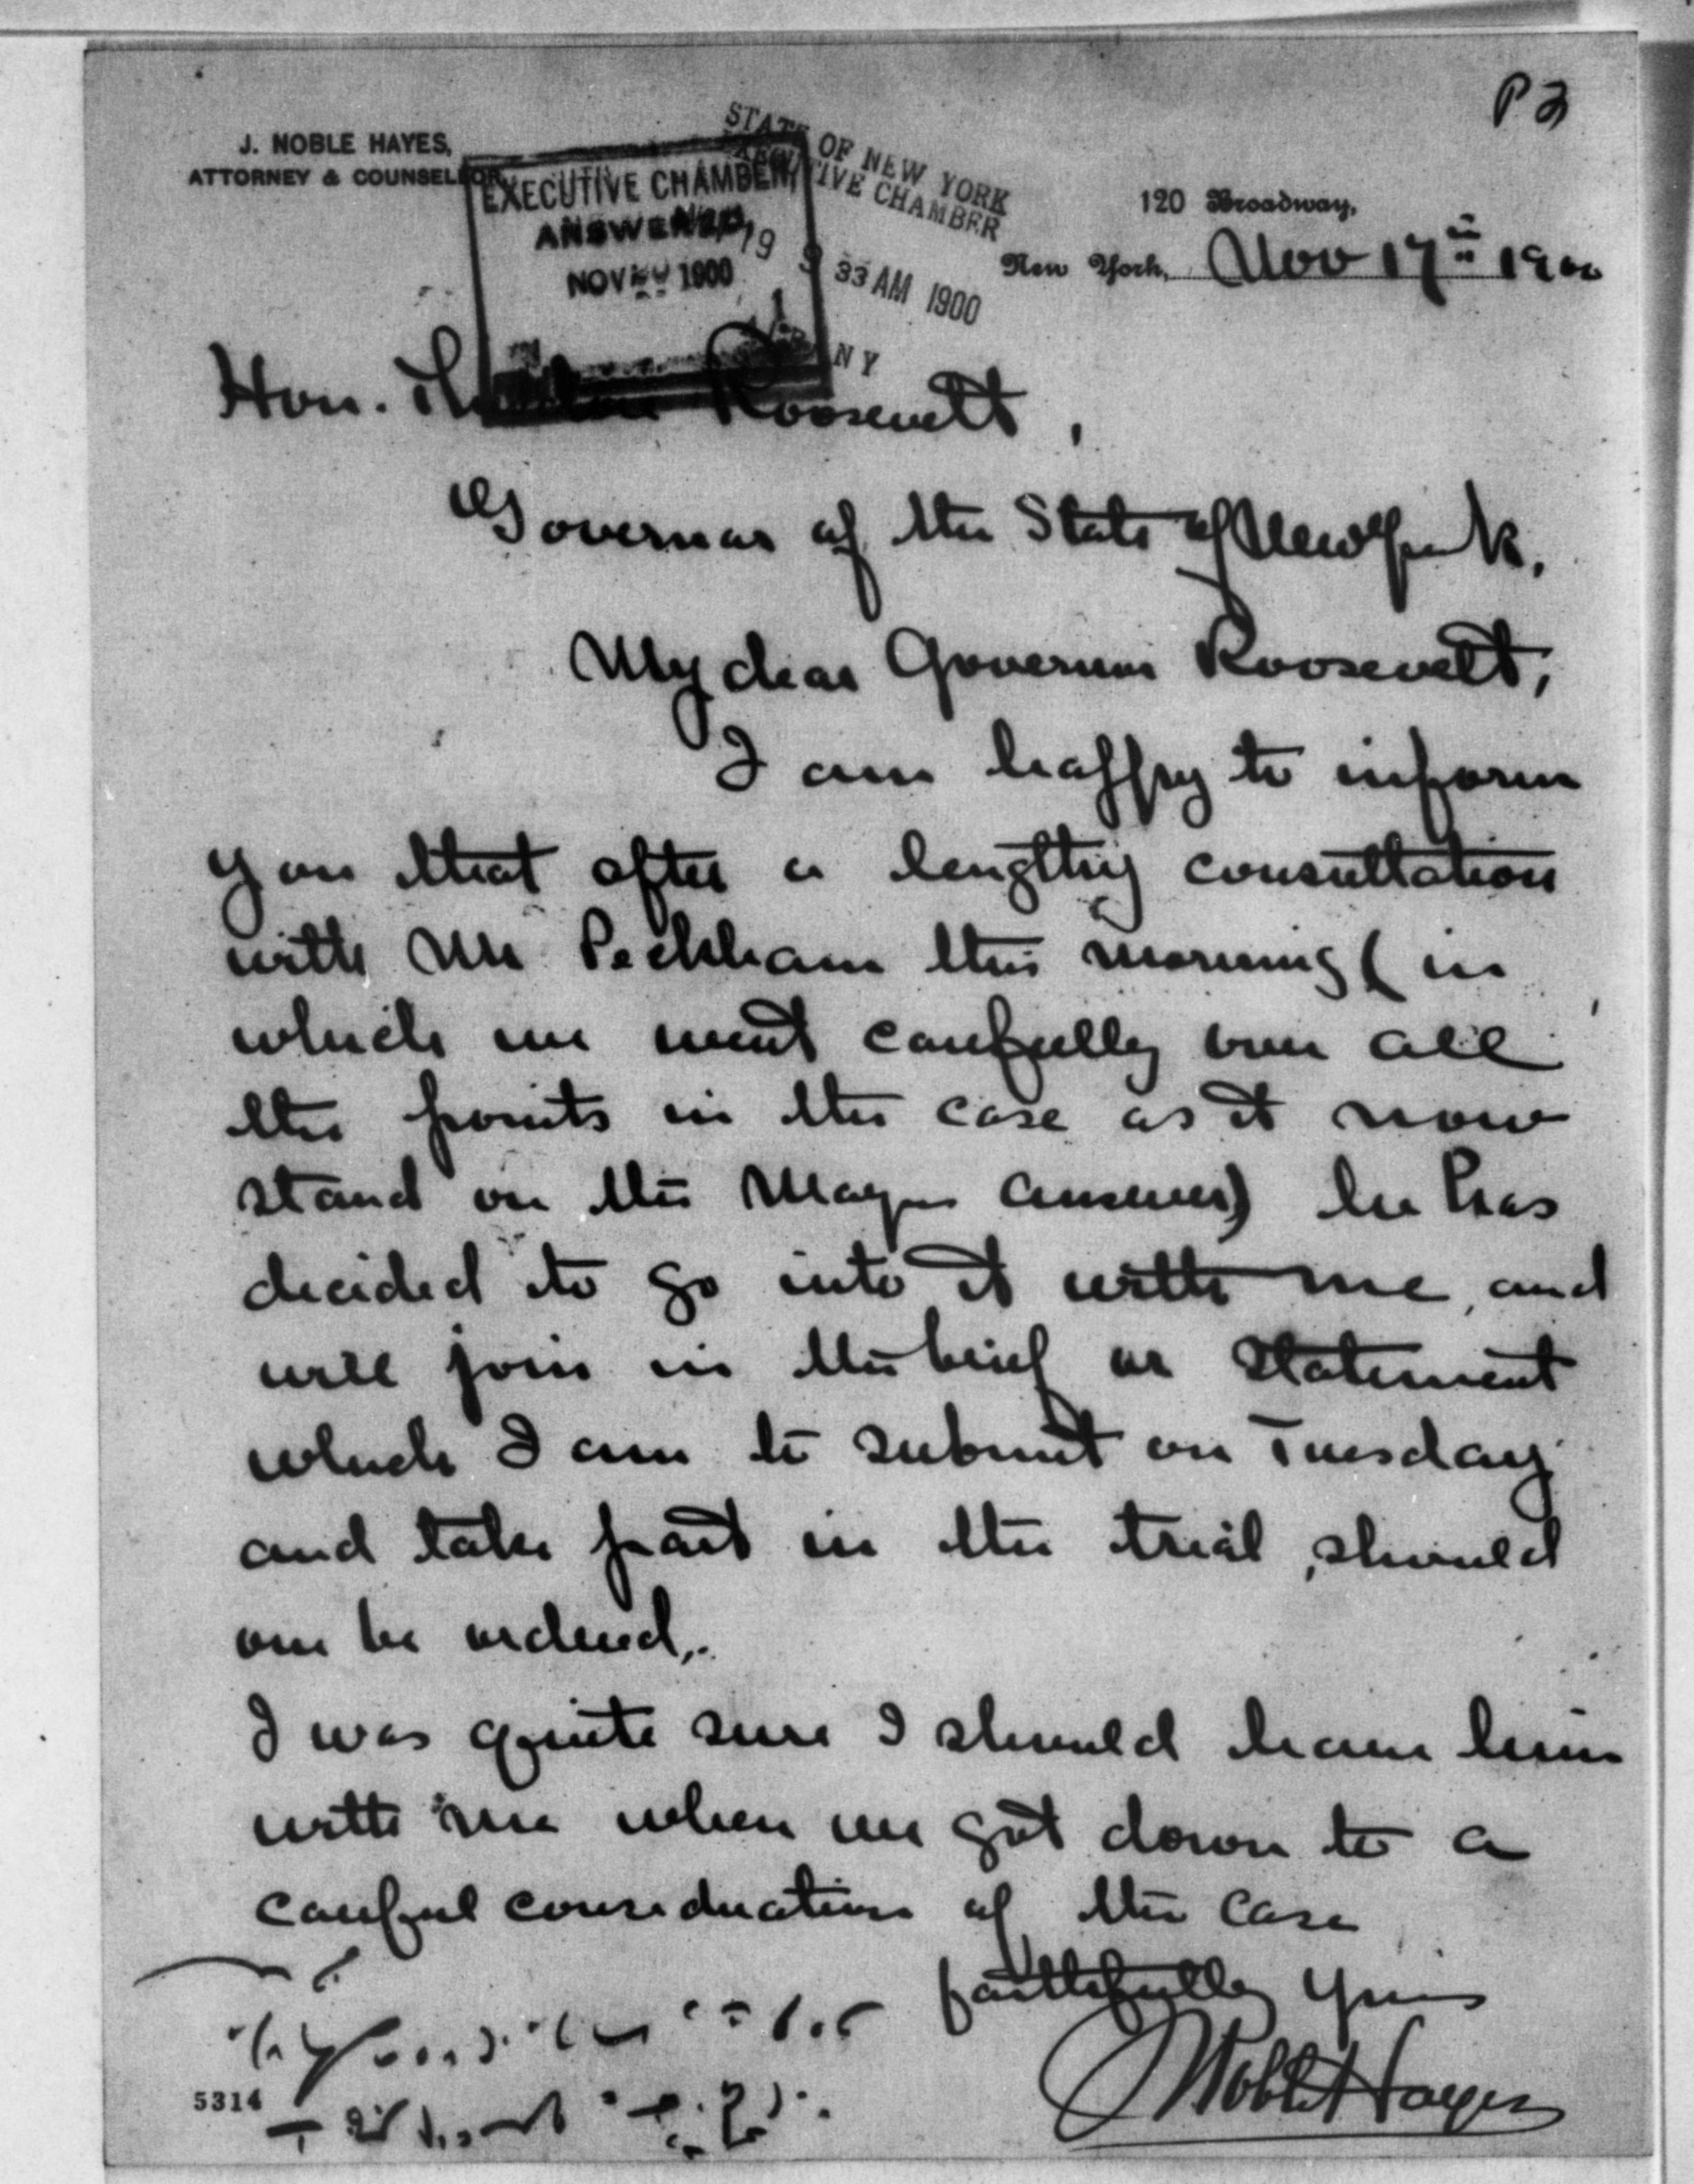 P2
J. NOBLE HAYES,
ATTORNEY & COUNSELLOR,
EXECUTIVE CHAMBER
ANSWERED
NOV 1900
STATE OF NEW YORK
EXECUTIVE CHAMBER
NOV 19 9 33 AM 1900
ALBANY N Y
120 Broadway,
New York, Nov 17th 1900
Hon. Theodore Roosevelt,
Governor of the State of New York.
My dear Governor Roosevelt,
I am happy to inform
you that after a lengthy consultation
with Mr Peckham this morning (in
which we went carefully over all
the points in the case as it now
stand on the Mayor answer) he has
decided to go into it with me, and
will join in the brief or statement
which I am to submit on Tuesday
and take part in the trial, should
one be ordered,.
I was quite sure I should have him
with me when we got down to a
careful consideration of the case
faithfully yours
J Noble Hayes
5314